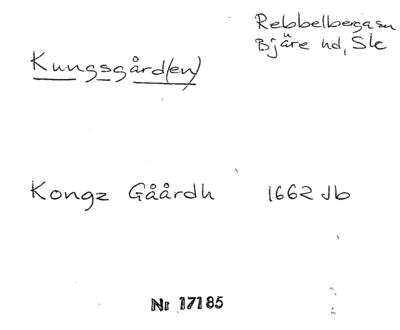 Rebbelberga sn
Bjäre hd, Sk
Kungsgård(en)
Kongz Gåårdh 1662 Jb
Nr 17185